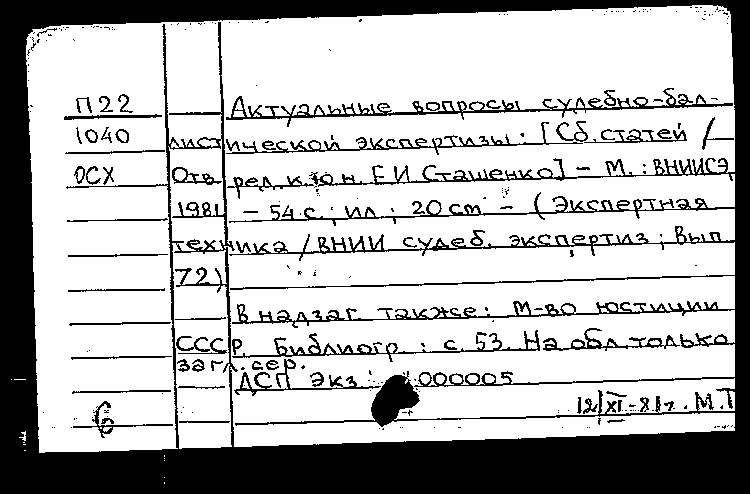 П22 Актуальные вопросы судебно-бал-
1040 листической экспертизы: [Сб. статей /
ОСХ Отв ред. к.ю.н. Е И Сташенко] - М. : ВНИИСЭ,
1981 - 54 с ; ил ; 20 cm - (Экспертная
техника / ВНИИ судеб. экспертиз ; Вып
72)
В надзаг также: М-во юстиции
СССР. Библиогр : с. 53. На обл только
загл. сер.
ДСП Экз : 000005
12/XI-81г. М.Т
6